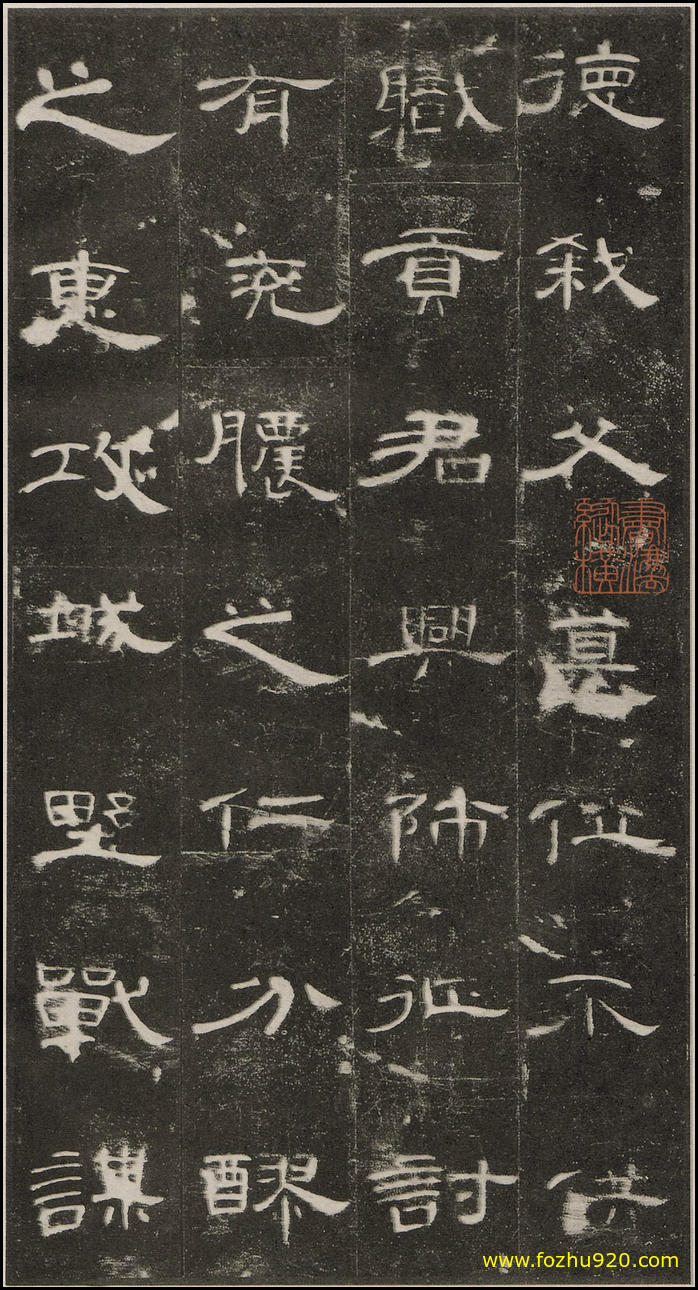 德弒父篡位不供
職貢君興師征討
有兗膿之仁分醪
之惠攻城野戰謀
www.fozhu920.com